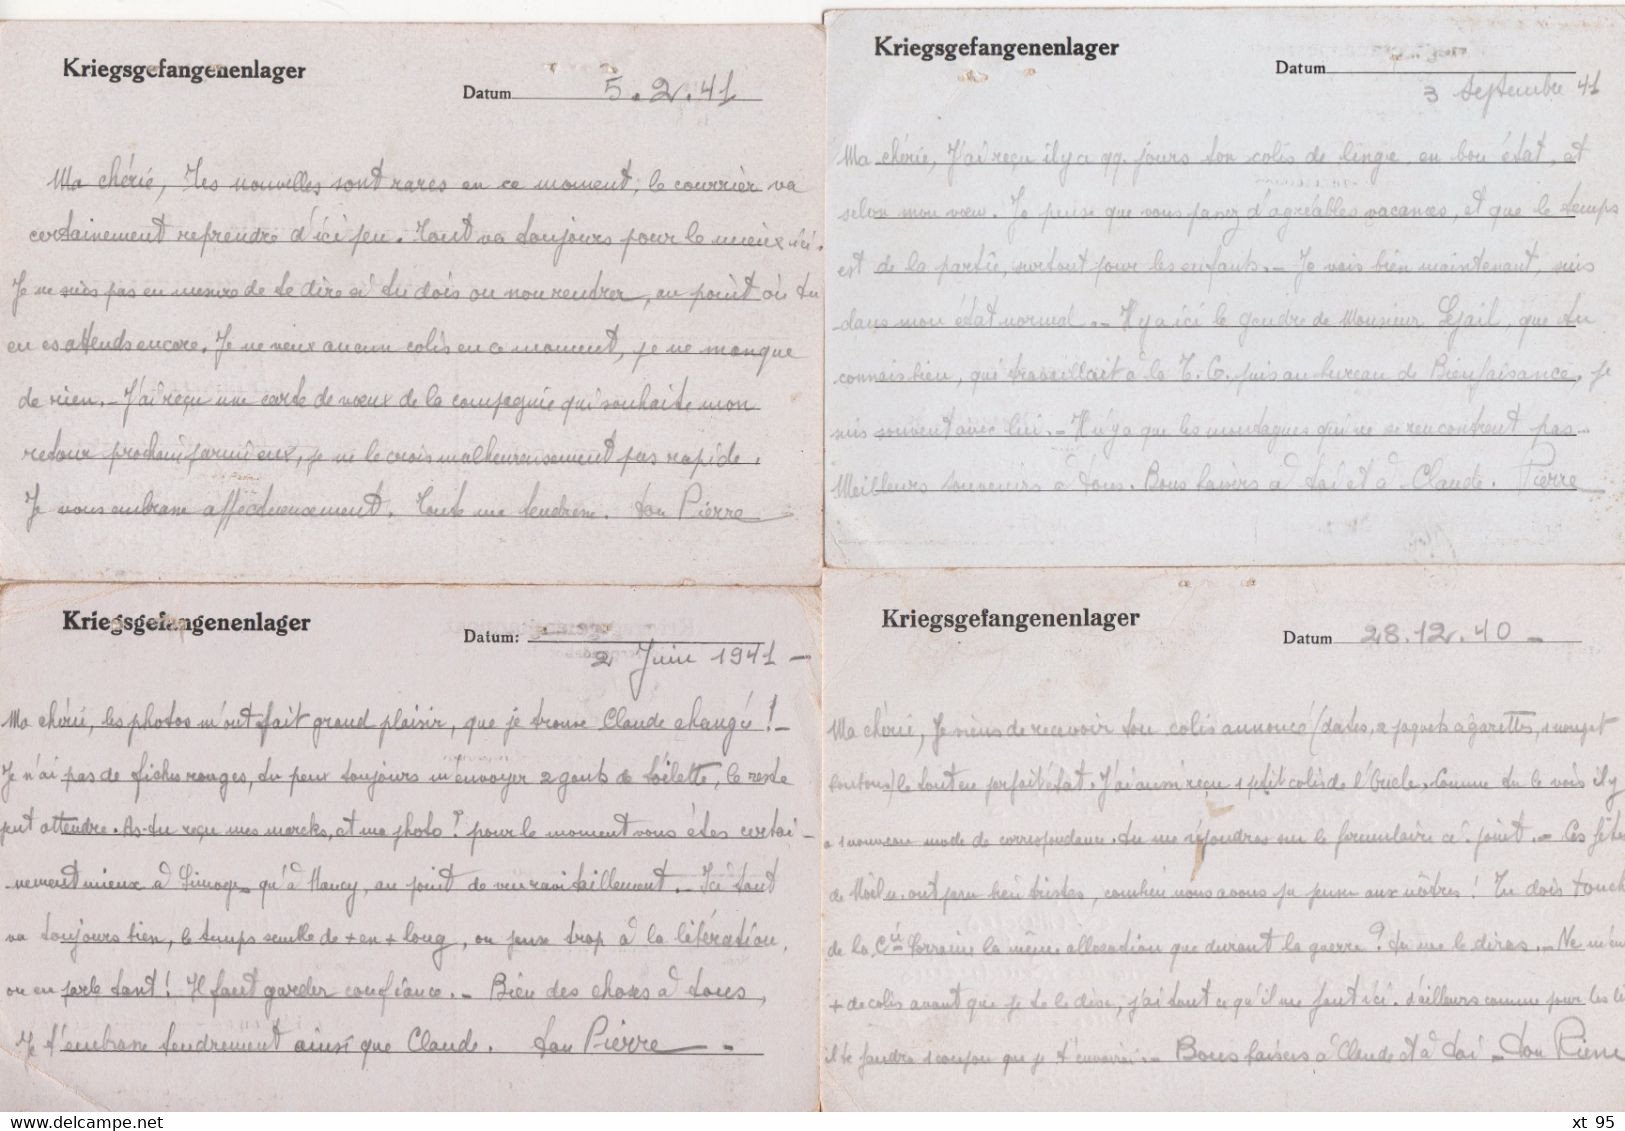 Kriegsgefangenenlager
Datum 5.2.41
Ma chérie, Tes nouvelles sont rares en ce moment, le courrier va
certainement reprendre d'ici peu. Tout va toujours pour le mieux ici.
Je ne suis pas en mesure de te dire si tu dois ou non rentrer, au point où tu
en es attends encore. Je ne veux aucun colis en ce moment, je ne manque
de rien. - J'ai reçu une carte de vœux de la compagnie qui souhaite mon
retour prochain parmi eux, je ne le crois malheureusement pas rapide.
Je vous embrasse affectueusement. Toute ma tendresse. ton Pierre
Kriegsgefangenenlager
Datum
3 Septembre 41
Ma chérie, J'ai reçu il y a qq. jours ton colis de linge, en bon état, et
selon mon vœu. Je pense que vous passez d'agréables vacances, et que le temps
est de la partie, surtout pour les enfants. - Je vais bien maintenant, suis
dans mon état normal. - Il y a ici le gendre de Monsieur Lejail, que tu
connais bien, qui travaillait à la T.C. puis au bureau de Bienfaisance, je
suis souvent avec lui. - Il n'y a que les montagnes qui ne se rencontrent pas -
Meilleurs souvenirs à tous. Bons baisers à toi et à Claude. Pierre
Kriegsgefangenenlager
Datum:
2 Juin 1941 -
Ma chérie, les photos m'ont fait grand plaisir, que je trouve Claude changé! -
Je n'ai pas de fiches rouges, tu peux toujours m'envoyer 2 gants de toilette, le reste
peut attendre. As-tu reçu mes marcks, et ma photo? pour le moment vous êtes certai-
nement mieux à Limoges qu'à Nancy, au point de vue ravitaillement. - Ici tout
va toujours bien, le temps semble de + en + long, on pense trop à la libération,
on en parle tant! Il faut garder confiance. - Bien des choses à tous,
Je t'embrasse tendrement ainsi que Claude. ton Pierre -
Kriegsgefangenenlager
Datum 28.12.40 -
Ma chérie, Je viens de recevoir ton colis annoncé (dattes, 2 paquets cigarettes, 1 nougat
) le tout en parfait état. J'ai aussi reçu 1 petit colis de l'Oncle. Comme tu le vois il y
a 1 nouveau mode de correspondance. tu me répondras sur le formulaire ci-joint. - Ces fêtes
de Noël n. ont paru bien tristes, combien nous avons pu penser aux nôtres! Tu dois touch
de la Cie Lorraine la même allocation que durant la guerre? tu me le diras. - Ne m'en
+ de colis avant que je te le dise, j'ai tout ce qu'il me faut ici. d'ailleurs comme pour les
il te faudra 1 coupon que je t'enverrai. - Bons baisers à Claude et à toi - ton Pierre
xt 95